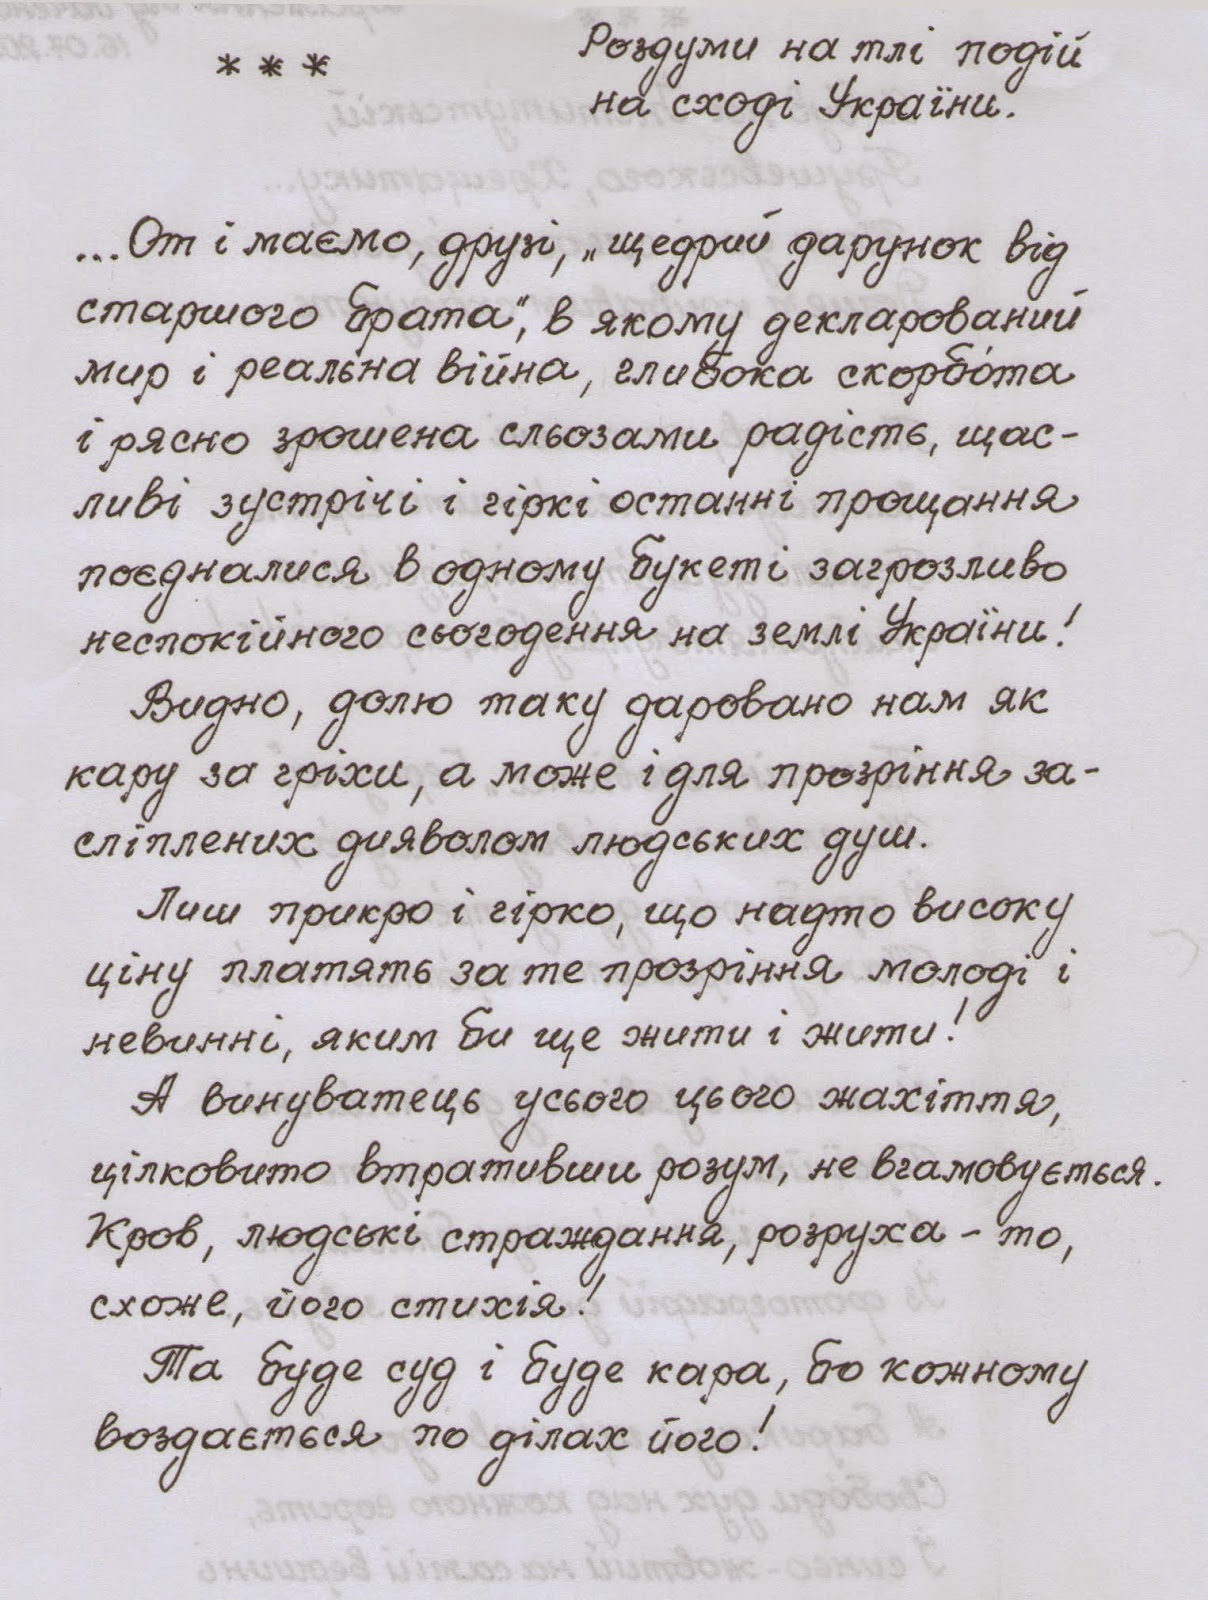 * * *
Роздуми на тлі подій
на сході України.
...От і маємо, друзі, „щедрий дарунок від
старшого брата“, в якому декларований
мир і реальна війна, глибока скорбо́та
і рясно зрошена сльозами радість, щас-
ливі зустрічі і гіркі останні прощання
поєдналися в одному букеті загрозливо
неспокійного сьогодення на землі України!
Видно, долю таку даровано нам як
кару за гріхи, а може і для прозріння за-
сліплених дияволом людських душ.
Лиш прикро і гірко, що надто високу
ціну платять за те прозріння молоді і
невинні, яким би ще жити і жити!
А винуватець усього цього жахіття,
цілковито втративши розум, не вгамовується.
Кров, людські страждання, розруха - то,
схоже, його стихія!
Та буде суд і буде кара, бо кожному
воздається по ділах його!